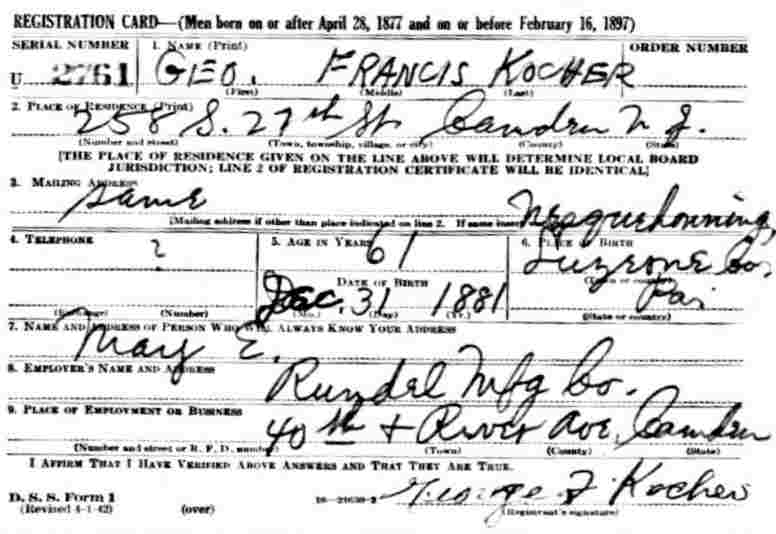 REGISTRATION CARD—(Men born on or after April 28, 1877 and on or before February 16, 1897)
SERIAL NUMBER 1. NAME (Print) ORDER NUMBER
U 2761 GEO. FRANCIS KOCHER
(First) (Middle) (Last)
2. PLACE OF RESIDENCE (Print)
258 S. 27th St Camden N. J.
(Number and street) (Town, township, village, or city) (County) (State)
[THE PLACE OF RESIDENCE GIVEN ON THE LINE ABOVE WILL DETERMINE LOCAL BOARD
JURISDICTION; LINE 2 OF REGISTRATION CERTIFICATE WILL BE IDENTICAL]
3. MAILING ADDRESS
Same
[Mailing address if other than place indicated on line 2. If same insert
Nesquehonning,
4. TELEPHONE 5. AGE IN YEARS 6. PLACE OF BIRTH
? 61 Luzerne Co.
DATE OF BIRTH (Town or county)
Dec. 31 1881 Pa.
(Exchange) (Number) (Mo.) (Day) (Yr.) (State or country)
7. NAME AND ADDRESS OF PERSON WHO WILL ALWAYS KNOW YOUR ADDRESS
Mary E.
8. EMPLOYER'S NAME AND ADDRESS
Rundel Mfg Co.
9. PLACE OF EMPLOYMENT OR BUSINESS
40th + River Ave. Camden
(Number and street or R. F. D. number) (Town) (County) (State)
I AFFIRM THAT I HAVE VERIFIED ABOVE ANSWERS AND THAT THEY ARE TRUE.
D. S. S. Form 1
(Revised 4-1-42) (over) 16—21630-2 George F Kocher
(Registrant's signature)